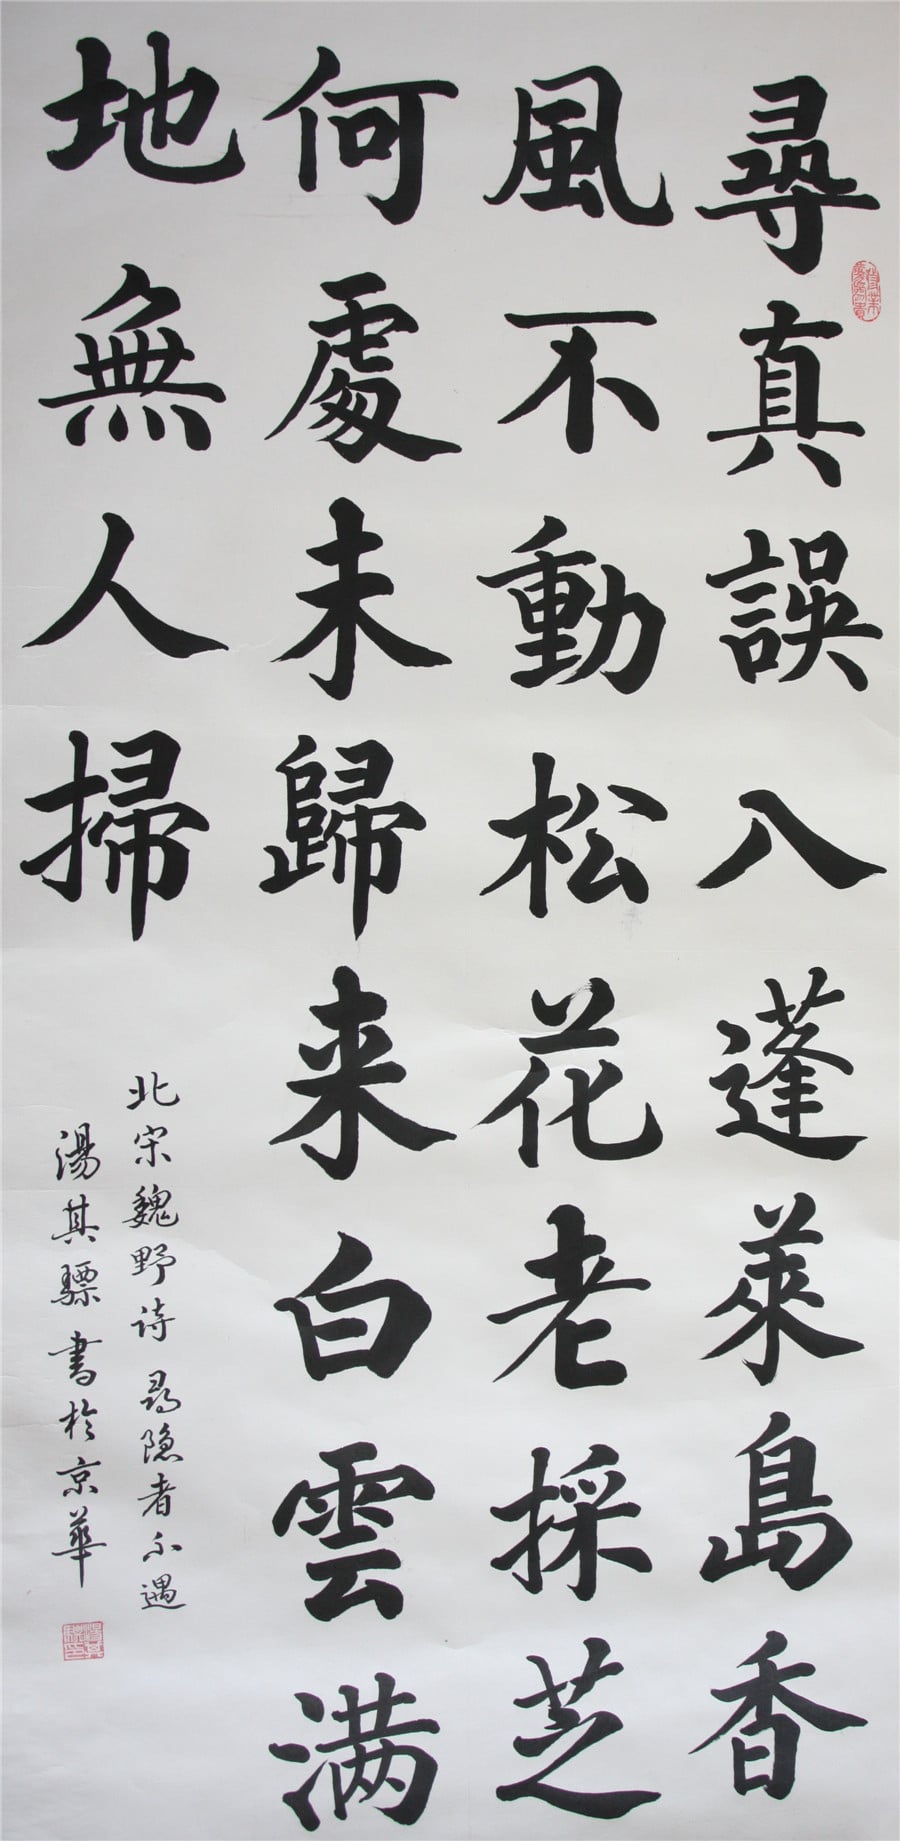 尋真誤入蓬萊島香
風不動松花老採芝
何處未歸来白雲满
地無人掃
北宋魏野诗 尋隐者不遇
湯其驃書於京華